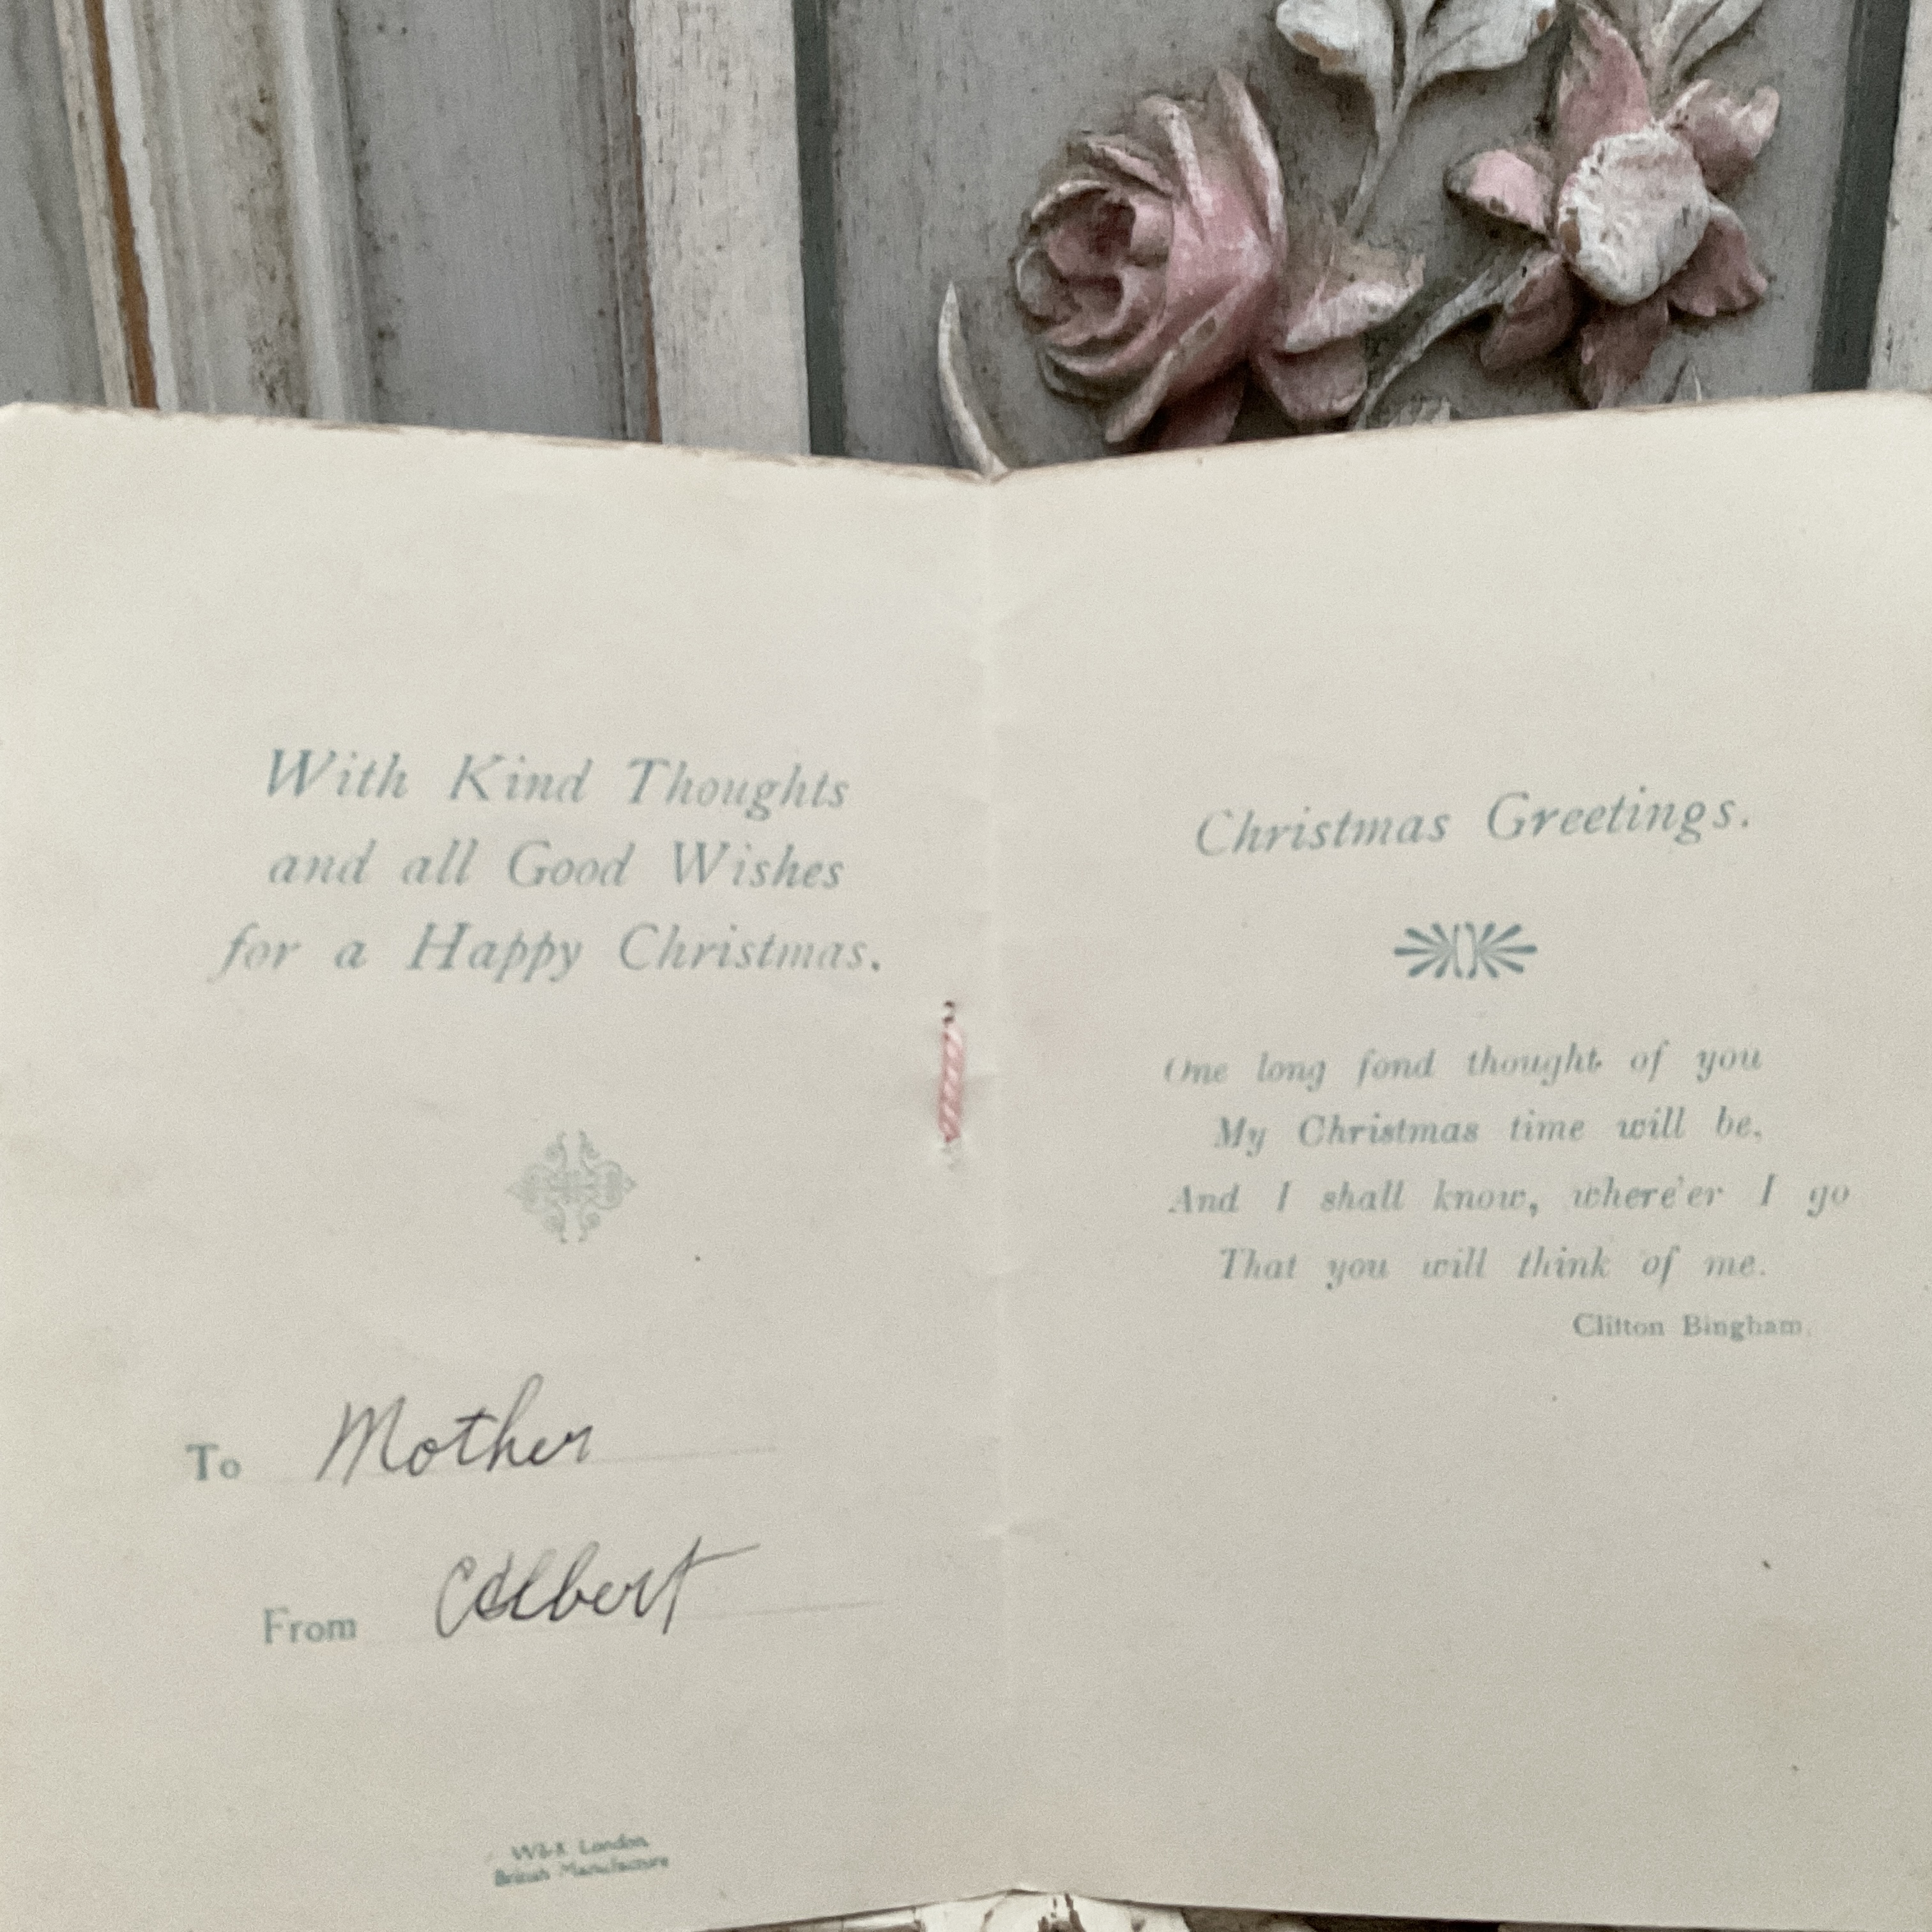 With Kind Thoughts
and all Good Wishes
for a Happy Christmas.
To Mother
From Albert
W&K London
British Manufacture
Christmas Greetings.
One long fond thought of you
My Christmas time will be,
And I shall know, where'er I go
That you will think of me.
Clifton Bingham.